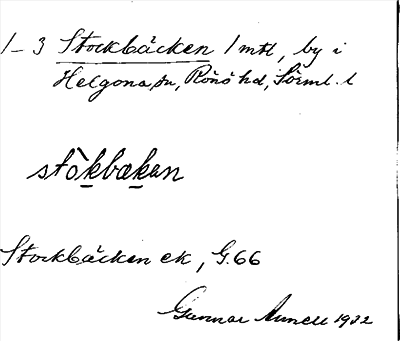 1–3 Stockbäcken 1 mtl, by i
Helgona sn, Rönö hd, Sörml. l
stòkbækan
Stockbäcken ek, G.66
Gunnar 1932